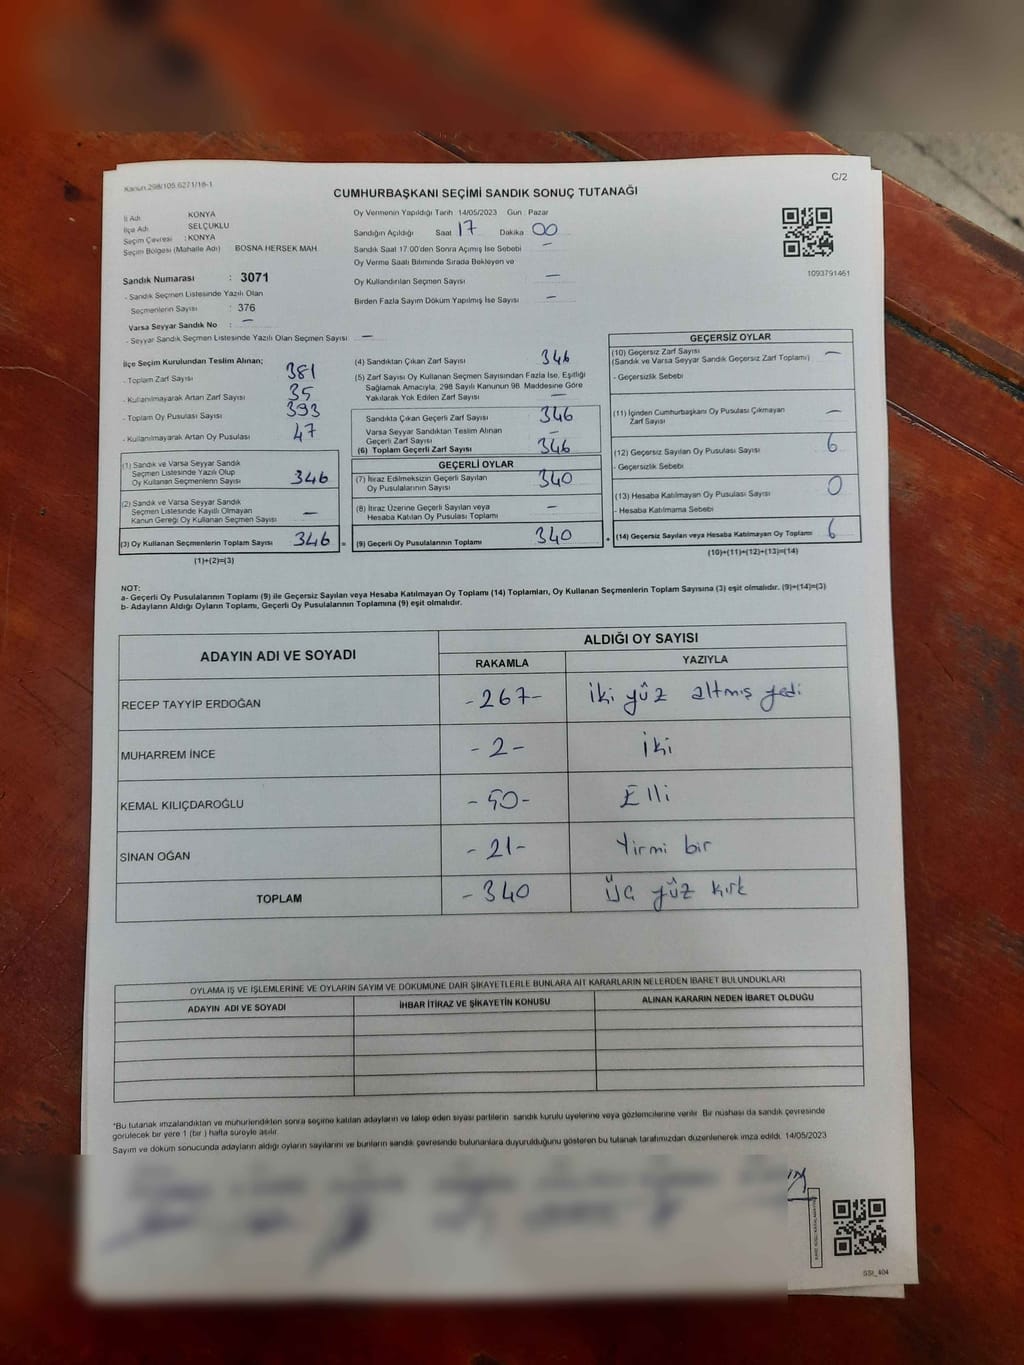 Kanun.298/105,6271/16-1
C/2
CUMHURBAŞKANI SEÇİMİ SANDIK SONUÇ TUTANAĞI
İl Adı KONYA
İlçe Adı SELÇUKLU
Seçim Çevresi : KONYA
Seçim Bölgesi (Mahalle Adı) BOSNA HERSEK MAH.
Sandık Numarası : 3071
- Sandık Seçmen Listesinde Yazılı Olan
Seçmenlerin Sayısı : 376
Varsa Seyyar Sandık No : -
- Seyyar Sandık Seçmen Listesinde Yazılı Olan Seçmen Sayısı -
Oy Vermenin Yapıldığı Tarih 14/05/2023 Gün : Pazar
Sandığın Açıldığı Saat 17 Dakika 00
Sandık Saat 17:00'den Sonra Açımış İse Sebebi -
Oy Verme Saati Bitiminde Sırada Bekleyen ve
Oy Kullandırılan Seçmen Sayısı -
Birden Fazla Sayım Döküm Yapılmış İse Sayısı -
1093791461
İlçe Seçim Kurulundan Teslim Alınan;
- Toplam Zarf Sayısı 381
- Kullanılmayarak Artan Zarf Sayısı 35
- Toplam Oy Pusulası Sayısı 393
- Kullanılmayarak Artan Oy Pusulası 47
(1) Sandık ve Varsa Seyyar Sandık
Seçmen Listesinde Yazılı Olup
Oy Kullanan Seçmenlerin Sayısı 346
(2) Sandık ve Varsa Seyyar Sandık
Seçmen Listesinde Kayıtlı Olmayan
Kanun Gereği Oy Kullanan Seçmen Sayısı -
(3) Oy Kullanan Seçmenlerin Toplam Sayısı 346 =
(1)+(2)=(3)
(4) Sandıktan Çıkan Zarf Sayısı 346
(5) Zarf Sayısı Oy Kullanan Seçmen Sayısından Fazla İse, Eşitliği
Sağlamak Amacıyla, 298 Sayılı Kanunun 98. Maddesine Göre
Yakılarak Yok Edilen Zarf Sayısı -
Sandıkta Çıkan Geçerli Zarf Sayısı 346
Varsa Seyyar Sandıktan Teslim Alınan
Geçerli Zarf Sayısı -
(6) Toplam Geçerli Zarf Sayısı 346
GEÇERLİ OYLAR
(7) İtiraz Edilmeksizin Geçerli Sayılan
Oy Pusulalarının Sayısı 340
(8) İtiraz Üzerine Geçerli Sayılan veya
Hesaba Katılan Oy Pusulası Toplamı -
(9) Geçerli Oy Pusulalarının Toplamı 340 +
GEÇERSİZ OYLAR
(10) Geçersiz Zarf Sayısı
(Sandık ve Varsa Seyyar Sandık Geçersiz Zarf Toplamı) -
- Geçersizlik Sebebi
(11) İçinden Cumhurbaşkanı Oy Pusulası Çıkmayan
Zarf Sayısı -
(12) Geçersiz Sayılan Oy Pusulası Sayısı 6
- Geçersizlik Sebebi
(13) Hesaba Katılmayan Oy Pusulası Sayısı 0
- Hesaba Katılmama Sebebi
(14) Geçersiz Sayılan veya Hesaba Katılmayan Oy Toplamı 6
(10)+(11)+(12)+(13)=(14)
NOT:
a- Geçerli Oy Pusulalarının Toplamı (9) ile Geçersiz Sayılan veya Hesaba Katılmayan Oy Toplamı (14) Toplamları, Oy Kullanan Seçmenlerin Toplam Sayısına (3) eşit olmalıdır. (9)+(14)=(3)
b- Adayların Aldığı Oyların Toplamı, Geçerli Oy Pusulalarının Toplamına (9) eşit olmalıdır.
ADAYIN ADI VE SOYADI
ALDIĞI OY SAYISI
RAKAMLA YAZIYLA
RECEP TAYYİP ERDOĞAN -267- iki yüz altmış yedi
MUHARREM İNCE -2- iki
KEMAL KILIÇDAROĞLU -50- Elli
SİNAN OĞAN -21- Yirmi bir
TOPLAM -340 üç yüz kırk
OYLAMA İŞ VE İŞLEMLERİNE VE OYLARIN SAYIM VE DÖKÜMÜNE DAİR ŞİKAYETLERLE BUNLARA AİT KARARLARIN NELERDEN İBARET BULUNDUKLARI
ADAYIN ADI VE SOYADI İHBAR İTİRAZ VE ŞİKAYETİN KONUSU ALINAN KARARIN NEDEN İBARET OLDUĞU
*Bu tutanak imzalandıktan ve mühürlendikten sonra seçime katılan adayların ve talep eden siyasi partilerin sandık kurulu üyelerine veya gözlemcilerine verilir. Bir nüshası da sandık çevresinde
görülecek bir yere 1 (bir) hafta süreyle asılır.
Sayım ve döküm sonucunda adayların aldığı oyların sayılarını ve bunların sandık çevresinde bulunanlara duyurulduğunu gösteren bu tutanak tarafımızdan düzenlenerek imza edildi. 14/05/2023
GSI_404